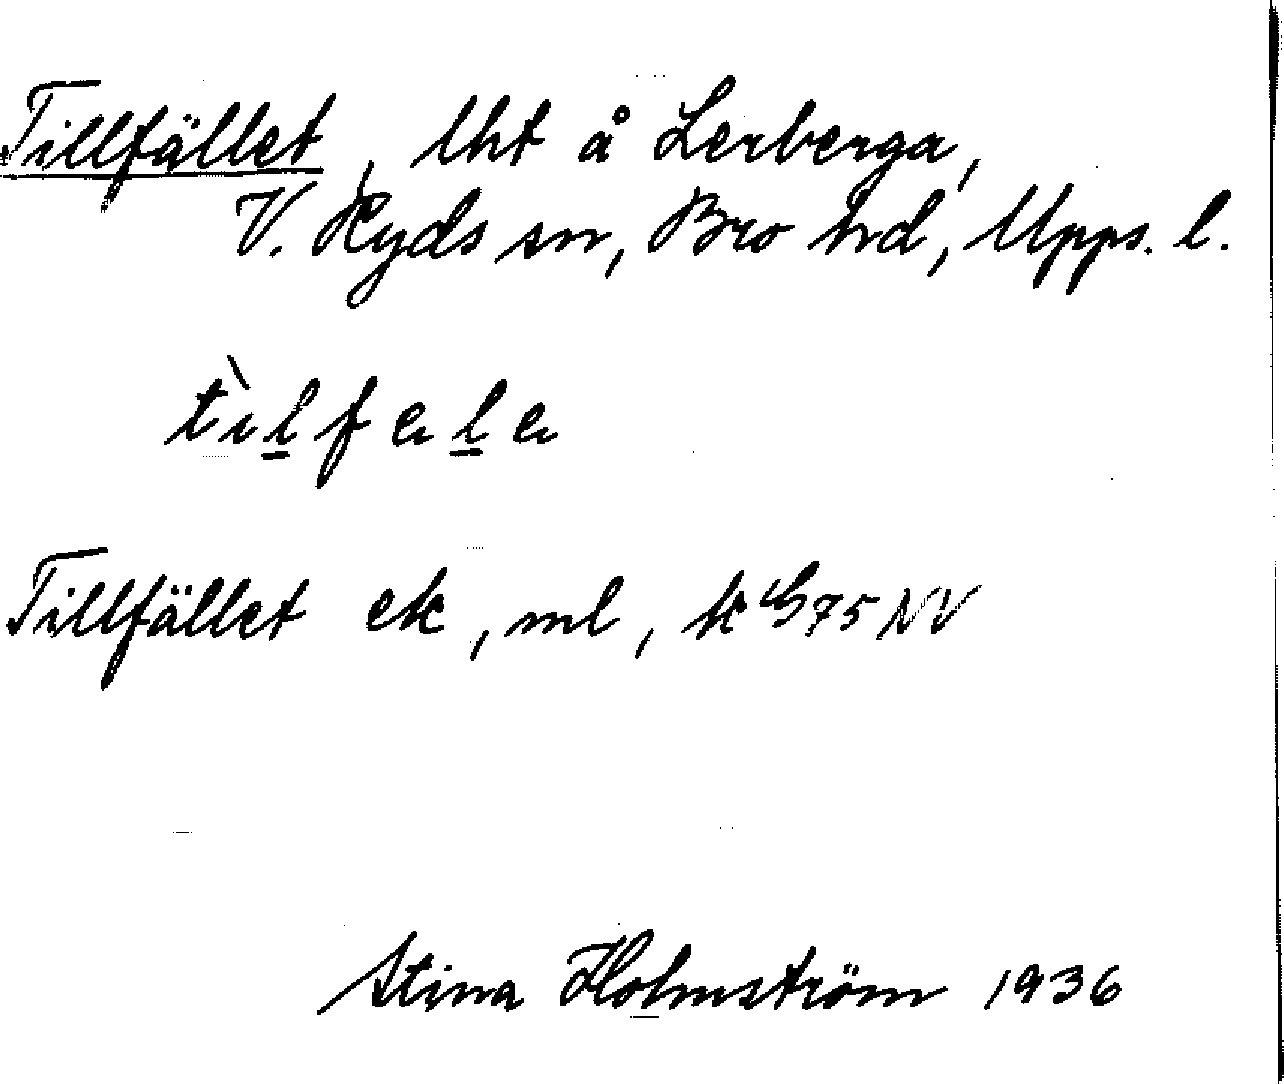 Tillfället, lht å Lerberga,
V. Ryds sn, Bro hd, Upps. l.
tìlfele
Tillfället ek, ml, k 75 NV
Stina Holmström 1936